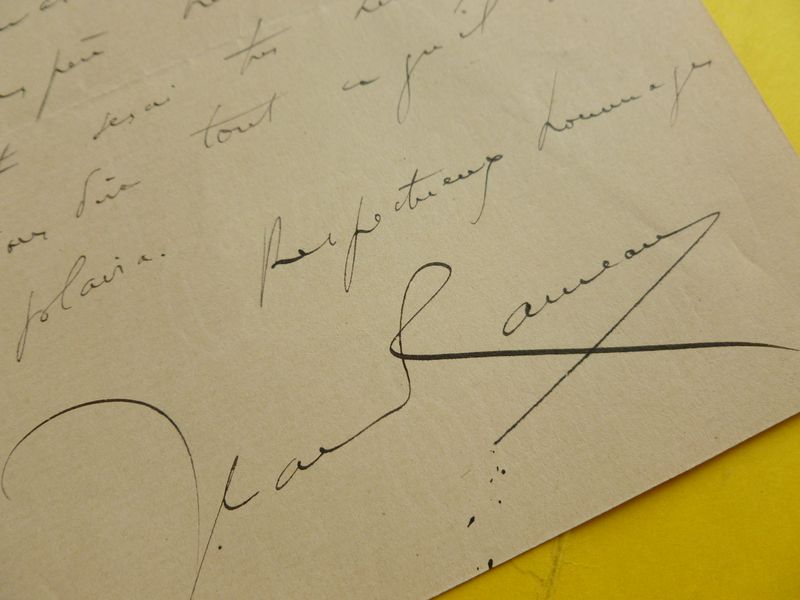 serai très
dire tout ce qu'il
plaira. Respectueux hommages
Jean Rameau